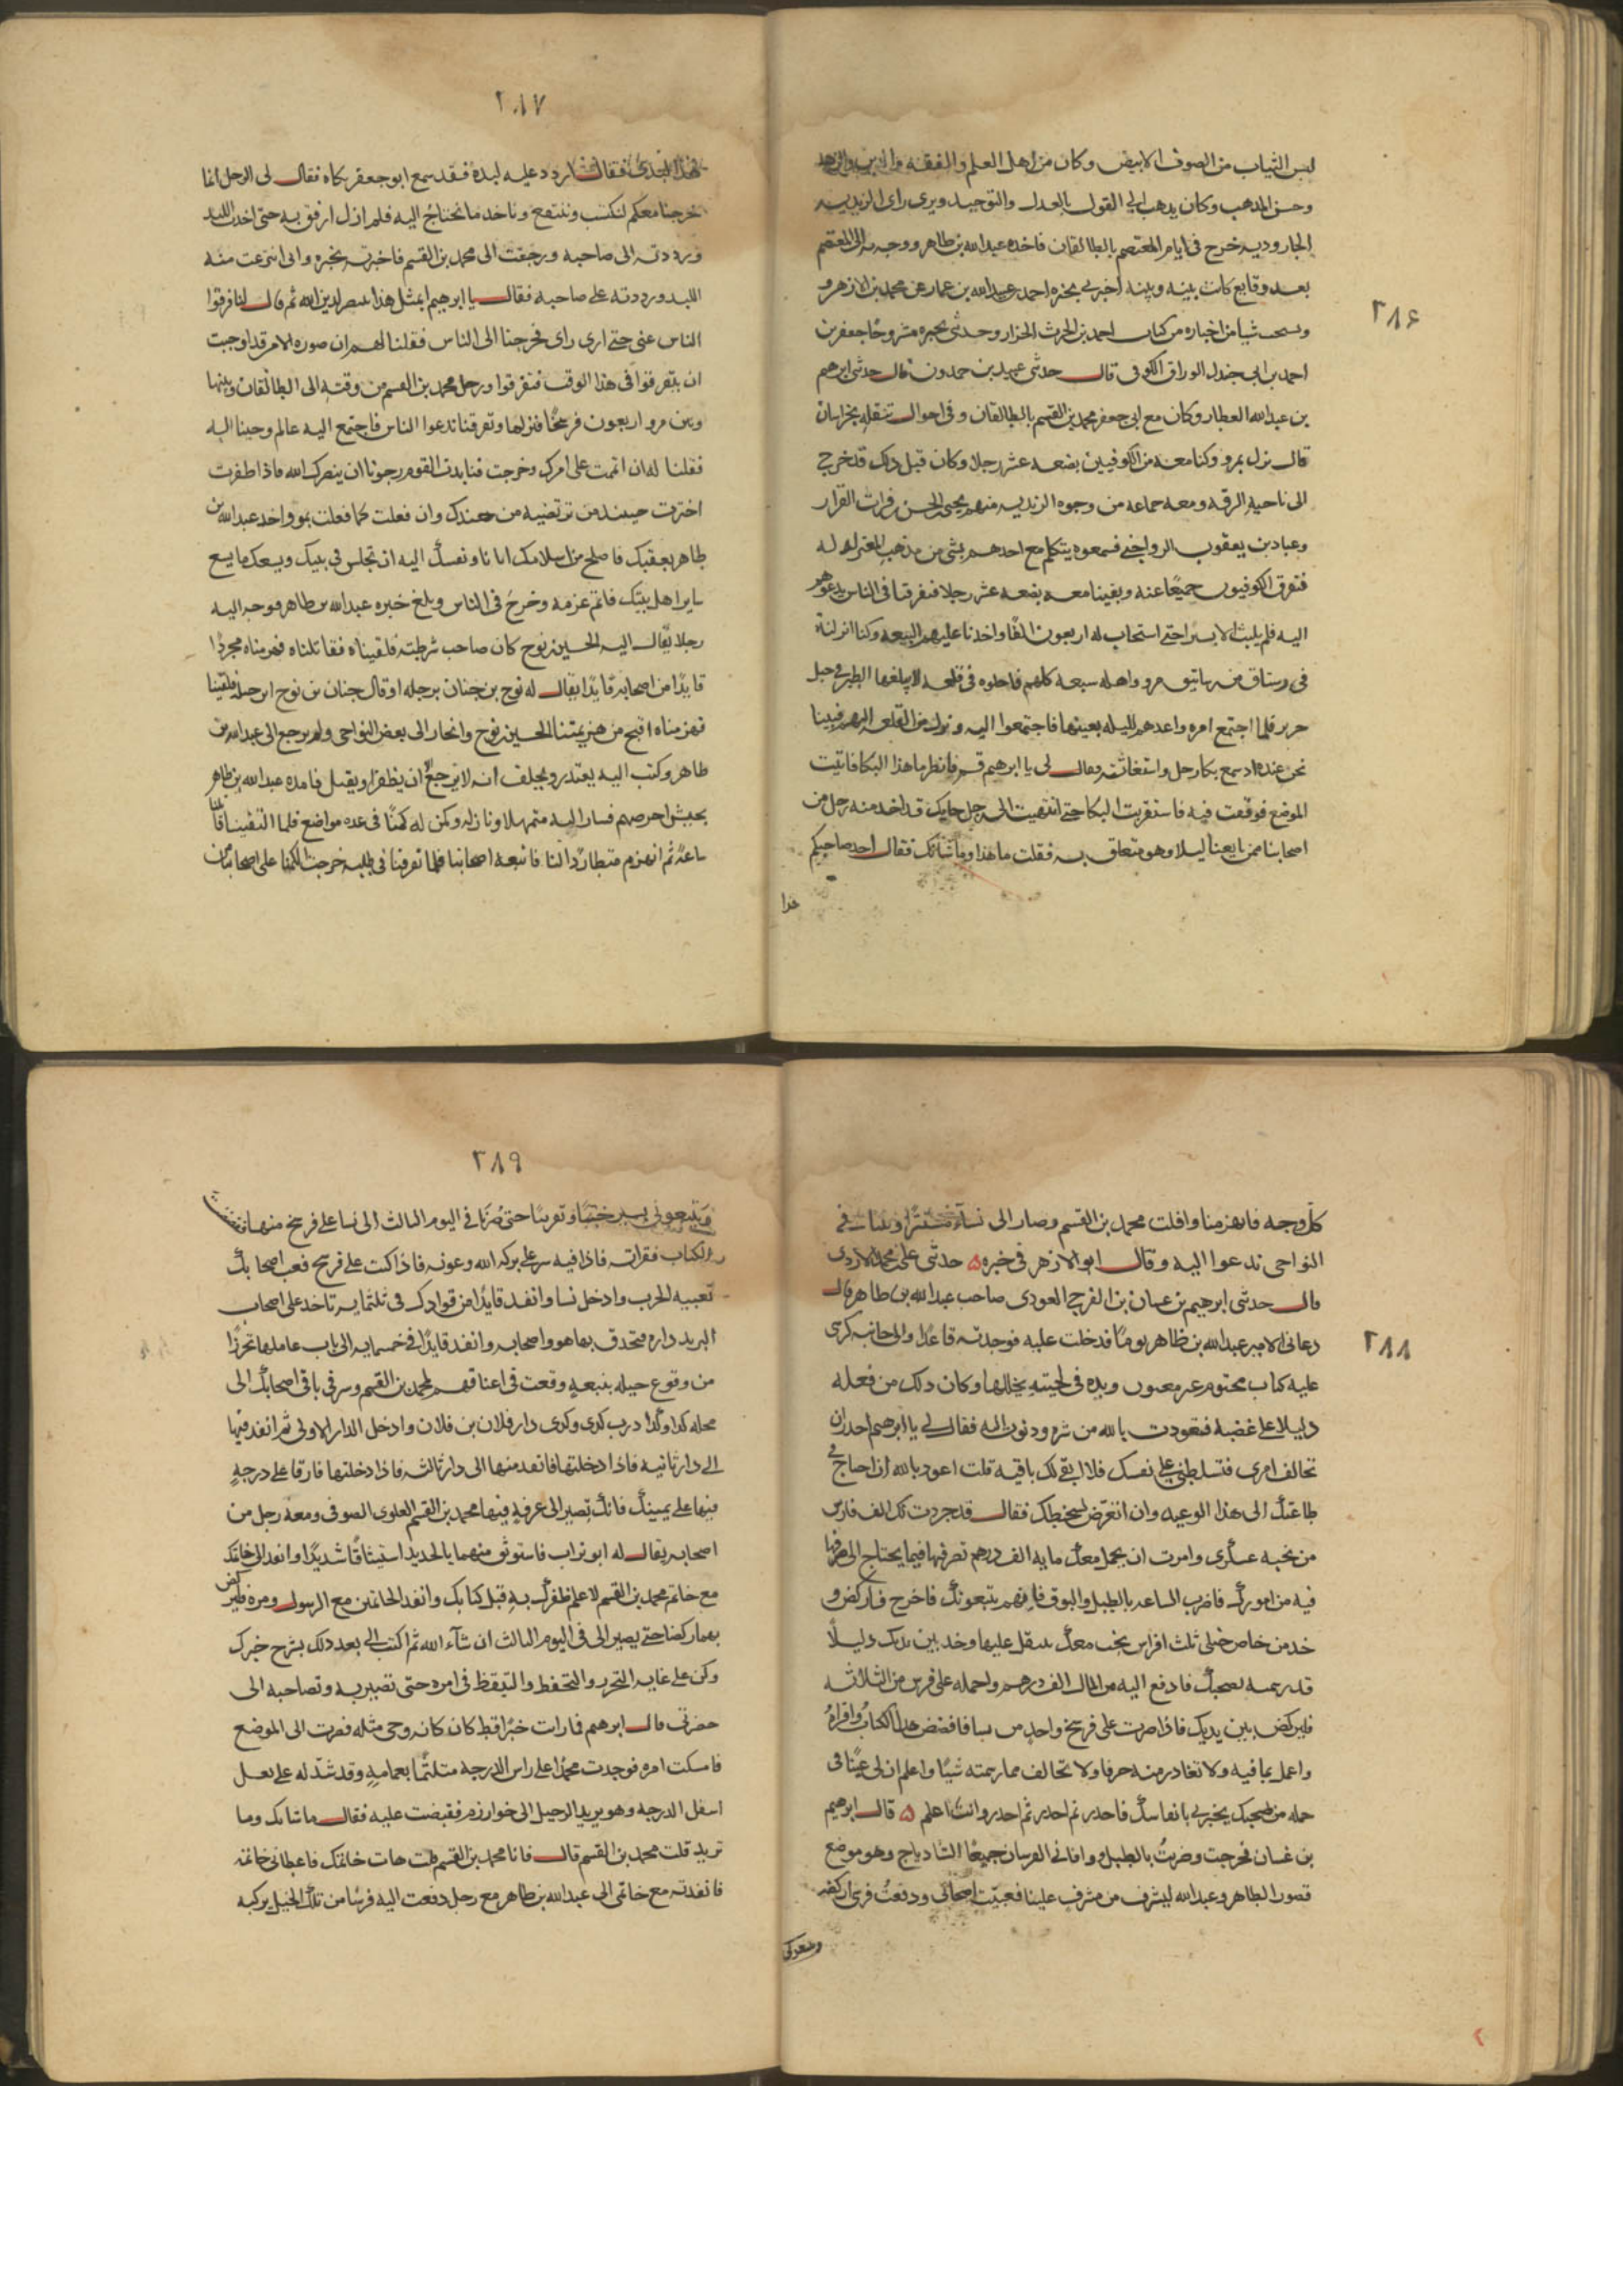 ٢٨٦
لبس الثياب من الصوف الابيض وكان من اهل العلم والفقه والدين والزهد
وحسن المذهب وكان يذهب الى القول بالعدل والتوحيد ويرى راى الزيديه
الجاروديه خرج فى ايام المعتصم بالطالقان فاخذه عبدالله بن طاهر ووجه به الى المعتصم
بعد وقايع كانت بينه وبينه اخبرنى بخبره احمد بن عبيدالله بن عمار عن محمد بن الازهر و
ونسخت شيا من اخباره من كتاب احمد بن الحرث الخزاز وحدثنى بخبره مشروحًا جعفر بن
احمد بن ابى جندل الوراق الكوفى قال حدثنى عبيد بن حمدون قال حدثنى ابرهيم
بن عبدالله العطار وكان مع ابى جعفر محمد بن القسم بالطالقان وفى احوال تنقله بخراسان
قال نزل بمرو وكنا معه من الكوفيين بضعه عشر رجلا وكان قبل ذلك قد خرج
الى ناحيه الرقه ومعه جماعه من وجوه الزيديه منهم يحيى بن الحسن بن فرات القزاز
وعباد بن يعقوب الرواجنى فسمعوه يتكلم مع احدهم بشى من مذهب المعتزله
فتفرق الكوفيون جميعًا عنه وبقينا معه بضعه عشر رجلا فتفرقنا فى الناس ندعوهم
اليه فلم يلبث الا يسيرا حتى استجاب له اربعون الفًا واخذنا عليهم البيعه وكنا انزلناه
فى رستاق من رساتيق مرو واهله شيعه كلهم فاحلوه فى قلعه لا يبلغها الطير فى جبل
حريز فلما اجتمع امره واعدهم لليله بعينها فاجتمعوا اليه ونزل من القلعه اليهم فبينا
نحن عنده اذ سمع بكا رجل واستغاثته فقال لى يا ابرهيم قم فانظر ما هذا البكا فاتيت
الموضع فوقفت فيه فاستقريت البكا حتى انتهيت الى رجل حايك قد اخذ منه رجل من
اصحابنا ممن بايعنا لبدا وهو متعلق به فقلت ما هذا وما شانك فقال اخذ صاحبكم
هذا
٢٨٧
هذا لبدى فقلت اردد عليه لبده فقد سمع ابو جعفر بكاه فقال لى الرجل انما
خرجنا معكم لنكتسب وننتفع وناخذ ما نحتاج اليه فلم ازل ارفق به حتى اخذت اللبد
ورددته الى صاحبه ورجعت الى محمد بن القسم فاخبرته بخبره وانى انتزعت منه
اللبد ورددته على صاحبه فقال يا ابرهيم ابمثل هذا ينصر لدين الله ثم قال لنا فرقوا
الناس عنى حتى ارى راى فخرجنا الى الناس فقلنا لهم ان صوره الامر قد اوجبت
ان يتفرقوا فى هذا الوقت فتفرقوا ورحل محمد بن القسم من وقته الى الطالقان وبينها
وبين مرو اربعون فرسخًا فنزلها وتفرقنا ندعوا الناس فاجتمع اليه عالم وجينا اليه
فقلنا له ان اتممت على امرك وخرجت فنابذت القوم رجونا ان ينصرك الله فاذا ظفرت
اخترت حينئذ من ترتضيه من جندك وان فعلت كما فعلت بمرو اخذ عبدالله بن
طاهر بعقبك فاصلح من اسلامك ايانا ونفسك اليه ان تجلس فى بيتك ويسعك ما يسع
ساير اهل بيتك فاتم عزمه وخرج فى الناس وبلغ خبره عبدالله بن طاهر فوجه اليه
رجلا يقال اليه الحسين بن نوح كان صاحب شرطته فلقيناه فقاتلناه فهزمناه مجردًا
قايدًا من اصحابه قايدًا يقال له نوح بن جنان برجله او قال جنان بن نوح ابن جبله فلقينا
فهزمناه اقبح من هزيمتنا الحسين بن نوح وانحاز الى بعض النواحى ولم يرجع الى عبدالله بن
طاهر وكتب اليه يعتذر ويحلف انه لا يرجع ان يظفر او يقتل فامده عبدالله بن طاهر
بجيش اخر ضخم فسار اليه متمهلا ونازله وكمن له كمنًا فى عده مواضع فلما التقينا قاتلنا
ساعةً ثم انهزم متطاردًا لنا فاتبعه اصحابنا فلما تفرقنا فى طلبه خرجت الكمنا على اصحابنا من
٢٨٨
كل وجه فانهزمنا وافلت محمد بن القسم وصار الى نسا مستترا وبثنا فى
النواحى ندعوا اليه وقال ابو الازهر فى خبره ٥ حدثنى على بن محمد الازدى
قال حدثنى ابرهيم بن غسان بن الفرج العودى صاحب عبدالله بن طاهر قال
دعانى الامير عبدالله بن طاهر يومًا فدخلت عليه فوجدته قاعدًا والى جانبه كرسى
عليه كتاب مختوم غير معنون ويده فى لحيته يخللها وكان ذلك من فعله
دليلا على غضبه فتعوذت بالله من شره ودنوت اليه فقال لى يا ابرهيم احذر ان
تخالف امرى فتسلطنى على نفسك فلا ابقى لك باقيه قلت اعوذ بالله ان احتاج فى
طاعتك الى هذا الوعيد وان اتعرض لسخطك فقال قد جردت لك الف فارس
من نخبه عسكرى وامرت ان يحمل معك مايه الف درهم تصرفها فيما يحتاج الى صرفها
فيه من امورك فاضرب الساعه بالطبل والبوق فانهم يتبعونك فاخرج فاركض و
خذ من خاص خيلى ثلث افراس نجب معك تنتقل عليها وخذ بين يديك دليلًا
قد رسمه لصحبتك فادفع اليه من المال الف درهم واحمله على فرس من الثلاثه
فليركض بين يديك فاذا صرت على فرسخ واحد من نسا فافضض هذا الكتاب واقراهُ
واعمل بما فيه ولا تغادر منه حرفا ولا تخالف مما رسمته شيًا واعلم ان لى عينًا فى
جمله من صحبك يخبرنى بانفاسك فاحذر ثم احذر ثم احذر وانت اعلم ٥ قال ابرهيم
بن غسان فخرجت وضربتُ بالطبل ووافانى الفرسان جميعًا الشادياج وهو موضع
قصور ال طاهر وعبدالله ليشرف من مشرف علينا فعبيت اصحابى ودفعتُ فرسى اركض
ويتبعونى
٢٨٩
ويتبعونى يسير خببًا وتعريبًا حتى صرنا فى اليوم الثالث الى نسا على فرسخ منها ففضضت
الكتاب فقراته فاذا فيه سر على بركه الله وعونه فاذا كنت على فرسخ فعب اصحابك
تعبيه الحرب وادخل نسا وانفذ قايدًا من قوادك فى ثلثمايه تاخذ على اصحاب
البريد داره فتحدق بها هو واصحابه وانفذ قايدًا فى خمسمايه الى باب عاملها تحرزًا
من وقوع حيله بتبعه وقعت فى اعناقهم لمحمد بن القسم وسر فى باقى اصحابك الى
محله كذا وكذا درب كذى وكذى دار فلان بن فلان وادخل الدار الاولى ثم انفذ فيها
الى دار ثانيه فاذا دخلتها فانفذ منها الى دار ثالثه فاذا دخلتها فارقا على درجةٍ
فيها على يمينك فانك تصير الى غرفةٍ فيها محمد بن القسم العلوى الصوفى ومعه رجل من
اصحابه يقال له ابو تراب فاستوثق منهما بالحديد استيثاقًا شديدًا وانفذ الى خاتمك
مع خاتم محمد بن القسم لاعلم ظفرك به قبل كتابك وانفذ الخاتمين مع الرسول ومره فليركض
بهما ركضا حتى يصير الى فى اليوم الثالث ان شآء الله ثم اكتب الى بعد ذلك بشرح خبرك
وكن على غايه التحرز والتحفظ والتيقظ فى امره حتى تصير به وتصاحبه الى
حضرتى قال ابرهيم فما رايت خبرًا قط كان كانه وحى مثله فصرت الى الموضع
فامسكت امره فوجدت محمدًا على راس الدرجه متلثمًا بعمامةٍ وقد شد له على بغل
اسفل الدرجه وهو يريد الرحيل الى خوارزم فقبضت عليه فقال ما شانك وما
تريد قلت محمد بن القسم قال فانا محمد بن القسم قلت هات خاتمك فاعطانى خاتمه
فانفذته مع خاتمى الى عبدالله بن طاهر مع رجل دفعت اليه فرسًا من تلك الخيل يركبه